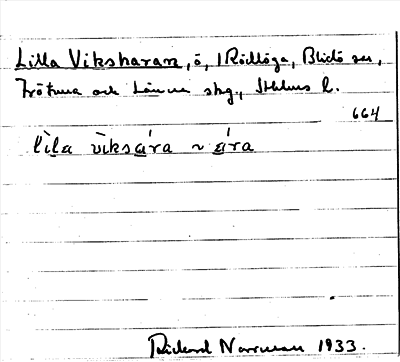 Lilla Viksharan, ö, i Rödlöga, Blidö sn,
Frötuna och Länna skg., Sthlms l.
664
lìla vìksára ~ ára
Rickard Norrman 1933.